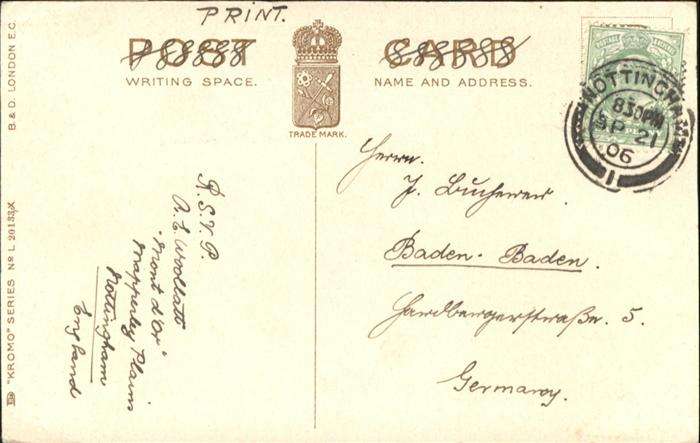 PRINT.
POST CARD
WRITING SPACE.
NAME AND ADDRESS.
TRADE MARK.
B. & D. LONDON E.C.
"KROMO" SERIES No L 20133X
NOTTINGHAM
8 30 PM
SP 21
06
1
R.S.V.P.
A. E. Woollatt
"Mont d'Or"
Mapperley Plains
Nottingham
England
Herrn.
J.
Baden-Baden.
Hardbergerstraße. 5.
Germany.